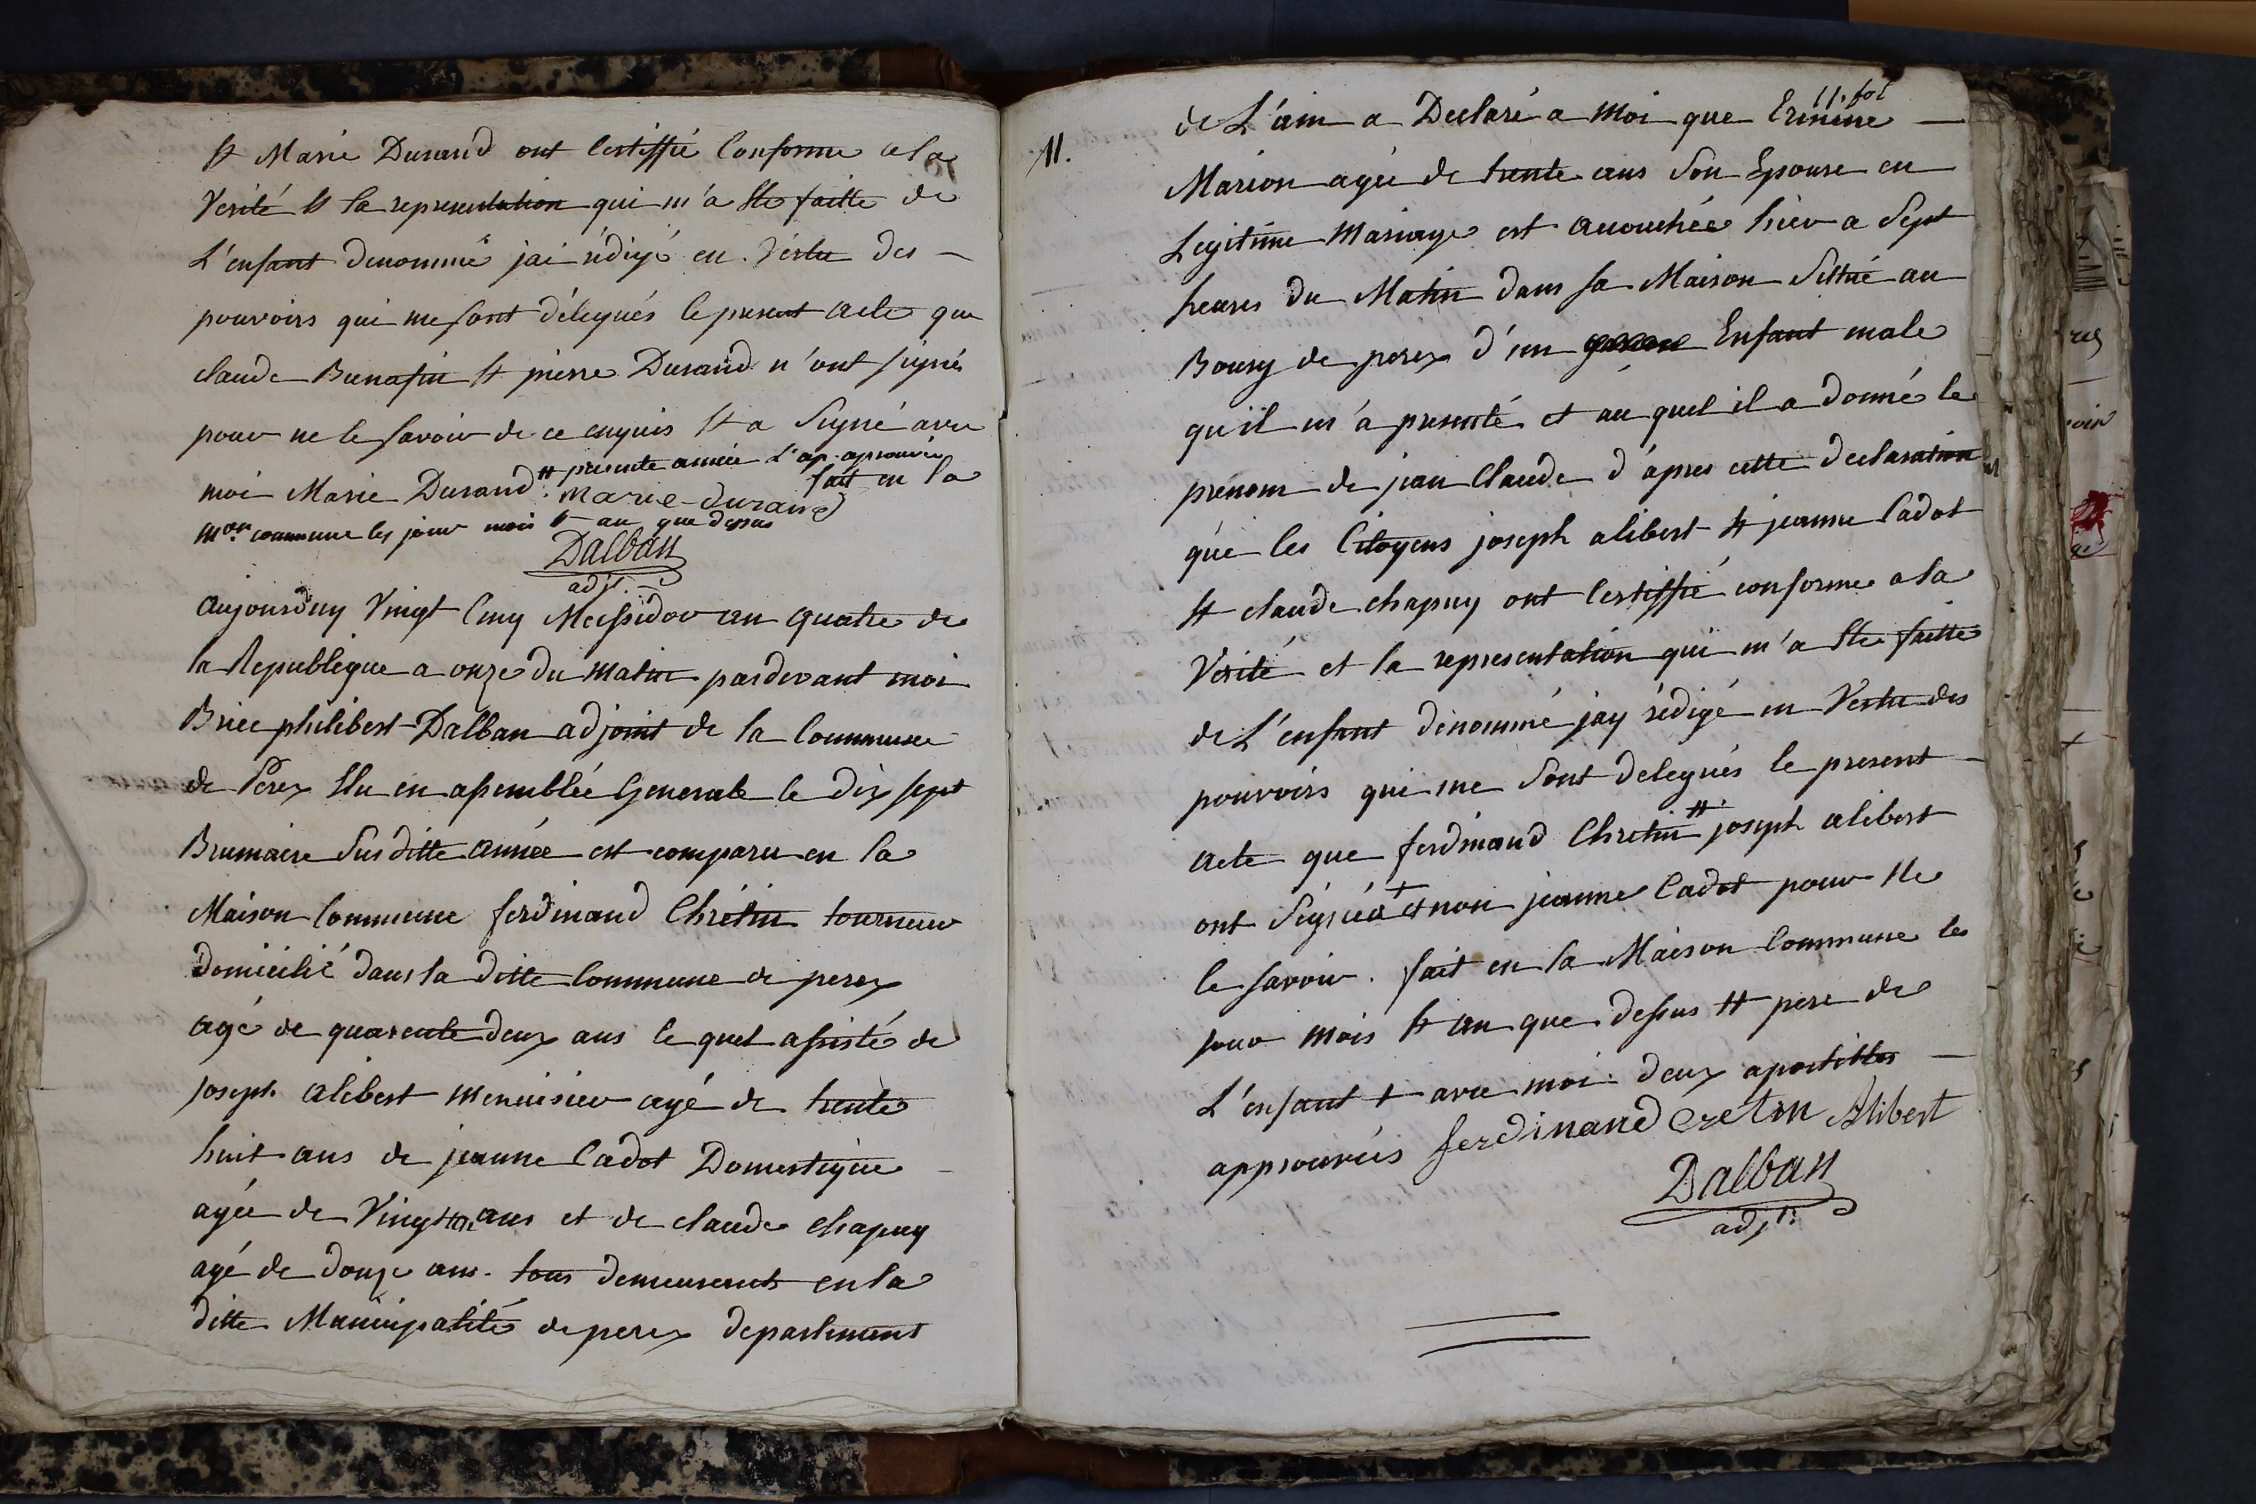 et Marie Durand ont Certiffié Conforme a la
Verité et la representation qui m'a ete faitte de
L'enfant denommé jai rédigé en Vértu des -
pouvoirs qui me sont délegués le present acte que
claude Bunafin et pierre Durand n'ont signé
pour ne le savoir de ce enquis et a Signé avec
moi Marie Durand # presente année L'ap. aprouvée
marie-durand fait en la
mon commune les jour mois et an que dessus
Dalban
adjt.
aujourduy Vingt Cinq Messidor an quatre de
la Republique a onze du matin pardevant moi
Brice philibert Dalban adjoint de la Commune
de Perex Elu en assemblée Generale le dix sept
Brumaire Sus ditte année est comparu en la
Maison Commune ferdinand Chrétin tourneur
Domicilié dans la ditte Commune de perex
agé de quarente deux ans le quel assisté de
joseph alibert menuisier agé de trente
huit ans de jeanne Cadot Domestique
agée de Vingt ans et de claude chapuy
agé de douze ans. tous demeurents en la
ditte Municipalité de perex departement
11. fol
11.
de L'ain a Declaré a moi que
Marion agée de trente ans Son Epouse en
Legitime Mariage est acouchée hier a Sept
heures du Matin dans sa Maison Sittué au
Bourg de perex d'un Enfant male
qu'il m'a presenté et au quel il a donné le
prenom de jean Claude d'apres cette declaration
que les Citoyens joseph alibert et jeanne Cadot
et claude chapuy ont Certiffié conforme a la
Vérité et la representation qui m'a ete faitte
de L'enfant dénommé jay rédigé en Vertu des
pouvoirs qui me Sont delegués le present -
acte que ferdinand Chretin # joseph alibert
ont Signé + et non jeanne Cadot pour ne
le savoir. fait en la Maison Commune les
jour mois et an que dessus # pere de
L'enfant + avec moi deux apostilles -
approuvéis ferdinand Cretin Alibert
Dalban
adjt.